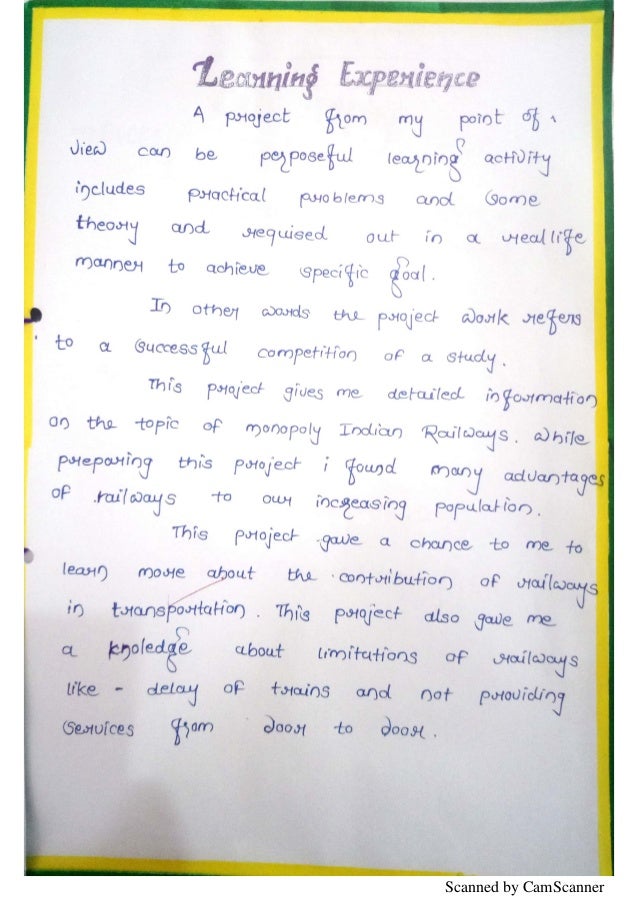 Learning Experience
A project from my point of
view can be perposeful learning activity
includes practical problems and some
theory and requised out in a real life
manner to achieve specific goal.
In other wards the project work refers
to a successful competition of a study.
This project gives me detailed information
on the topic of monopoly Indian Railways. While
preparing this project i found many advantages
of railways to our increasing population.
This project gave a chance to me to
learn more about the contribution of railways
in transportation. This project also gave me
a knoledge about limitations of railways
like - delay of trains and not providing
services from door to door.
Scanned by CamScanner